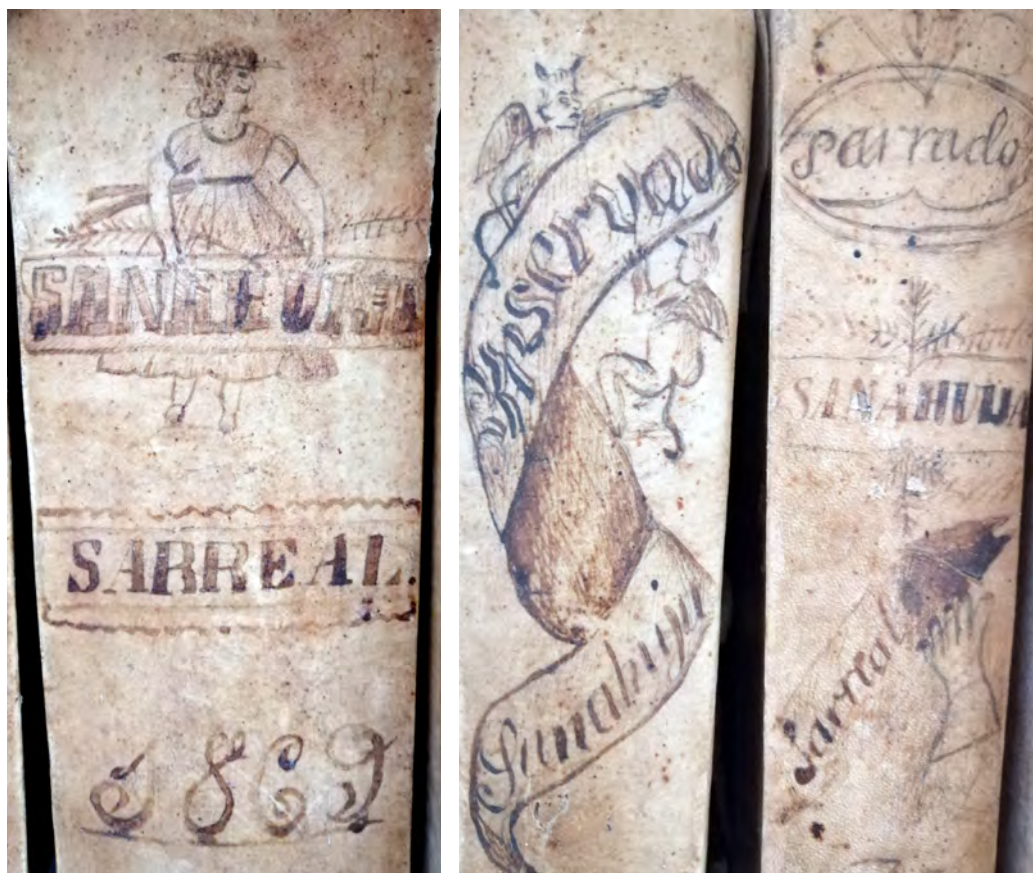 SANAHUJA
SARREAL.
1869
Reservado
Sanahuja
parrado
SANAHUJA
Sarreal